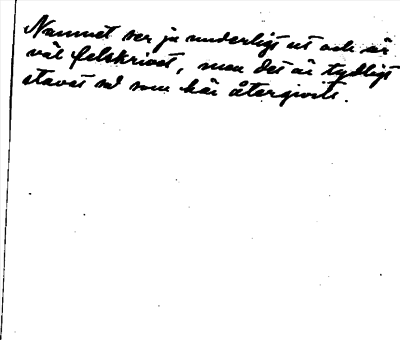 Namnet ser ju underligt ut och är
väl felskrivet, men det är tydligt
stavat så som här återgivits.